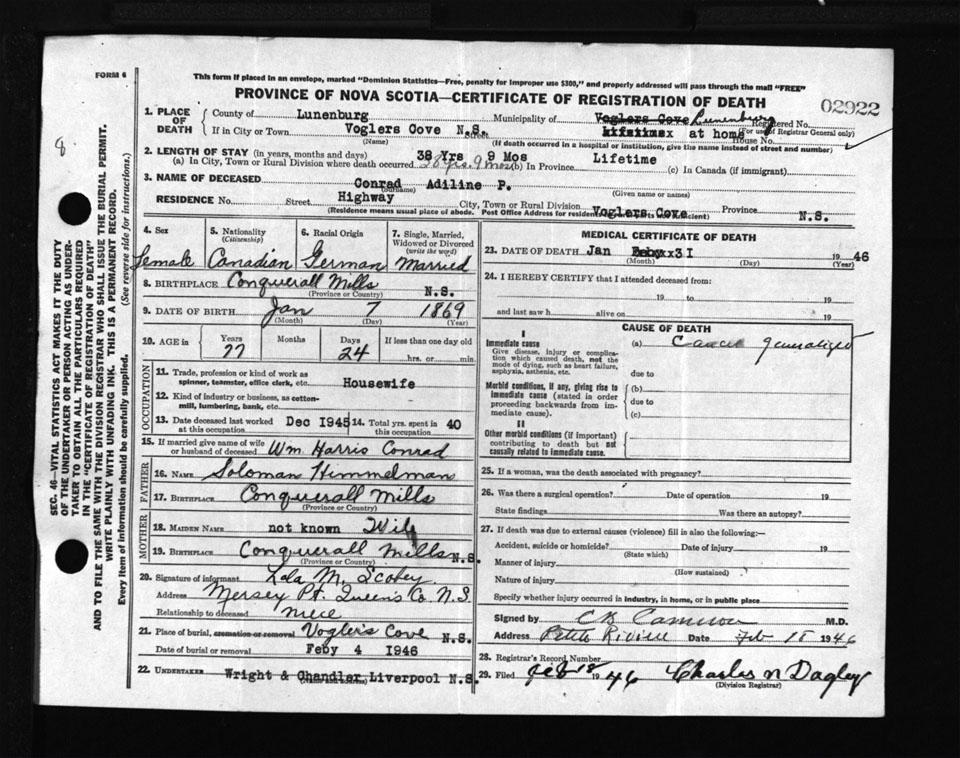 FORM 6
This form if placed in an envelope, marked "Dominion Statistics—Free, penalty for improper use $300," and properly addressed will pass through the mail "FREE"
PROVINCE OF NOVA SCOTIA—CERTIFICATE OF REGISTRATION OF DEATH
02922
8
SEC. 46—VITAL STATISTICS ACT MAKES IT THE DUTY
OF THE UNDERTAKER OR PERSON ACTING AS UNDER-
TAKER TO OBTAIN ALL THE PARTICULARS REQUIRED
IN THE "CERTIFICATE OF REGISTRATION OF DEATH"
AND TO FILE THE SAME WITH THE DIVISION REGISTRAR WHO SHALL ISSUE THE BURIAL PERMIT.
WRITE PLAINLY WITH UNFADING INK. THIS IS A PERMANENT RECORD.
Every item of information should be carefully supplied. (See reverse side for instructions.)
1. PLACE OF DEATH
County of Lunenburg Municipality of Voglers Cove Lunenburg Registered No.
(For use of Registrar General only)
If in City or Town Voglers Cove N.S. Street at home House No.
(Name) (If death occurred in a hospital or institution, give the name instead of street and number)
2. LENGTH OF STAY (in years, months and days) 38 Yrs 9 Mos Lifetime
(a) In City, Town or Rural Division where death occurred 9 mos (b) In Province (c) In Canada (if immigrant)
3. NAME OF DECEASED Conrad Adiline P.
(Surname) (Given name or names)
RESIDENCE No. Street Highway City, Town or Rural Division Voglers Cove Province N.S.
(Residence means usual place of abode. Post Office Address for residents is not sufficient)
4. Sex 5. Nationality (Citizenship) 6. Racial Origin 7. Single, Married, Widowed or Divorced (write the word)
Female Canadian German Married
8. BIRTHPLACE Conquerall Mills N.S.
(Province or Country)
9. DATE OF BIRTH Jan 7 1869
(Month) (Day) (Year)
10. AGE in Years Months Days If less than one day old
77 24 hrs. or min.
OCCUPATION
11. Trade, profession or kind of work as spinner, teamster, office clerk, etc. Housewife
12. Kind of industry or business, as cotton-mill, lumbering, bank, etc.
13. Date deceased last worked at this occupation Dec 1945 14. Total yrs. spent in this occupation 40
15. If married give name of wife or husband of deceased Wm. Harris Conrad
FATHER
16. NAME Soloman Himmelman
17. BIRTHPLACE Conquerall Mills
(Province or Country)
MOTHER
18. MAIDEN NAME not known Wile
19. BIRTHPLACE Conquerall Mills N.S.
(Province or Country)
20. Signature of informant Lola M. Scobey
Address Mersey Pt. Queens Co. N.S.
Relationship to deceased niece
21. Place of burial, cremation or removal Vogler's Cove N.S.
Date of burial or removal Feby 4 1946
22. UNDERTAKER Wright & Chandler Liverpool N.S.
MEDICAL CERTIFICATE OF DEATH
23. DATE OF DEATH Jan 31 1946
(Month) (Day) (Year)
24. I HEREBY CERTIFY that I attended deceased from:
19 to 19
and last saw h alive on 19
CAUSE OF DEATH
I
Immediate cause (a) Cancer generalized
Give disease, injury or complication which caused death, not the mode of dying, such as heart failure, asphyxia, asthenia, etc.
due to
Morbid conditions, if any, giving rise to immediate cause (stated in order proceeding backwards from immediate cause).
(b)
due to
(c)
II
Other morbid conditions (if important) contributing to death but not causally related to immediate cause.
25. If a woman, was the death associated with pregnancy?
26. Was there a surgical operation? Date of operation 19
State findings Was there an autopsy?
27. If death was due to external causes (violence) fill in also the following:—
Accident, suicide or homicide? Date of injury 19
(State which)
Manner of injury
(How sustained)
Nature of injury
Specify whether injury occurred in industry, in home, or in public place
Signed by C B Cameron M.D.
Address Petite Riviere Date Feb 18 1946
28. Registrar's Record Number
29. Filed Feb 18 1946 Charles N Dagley
(Division Registrar)